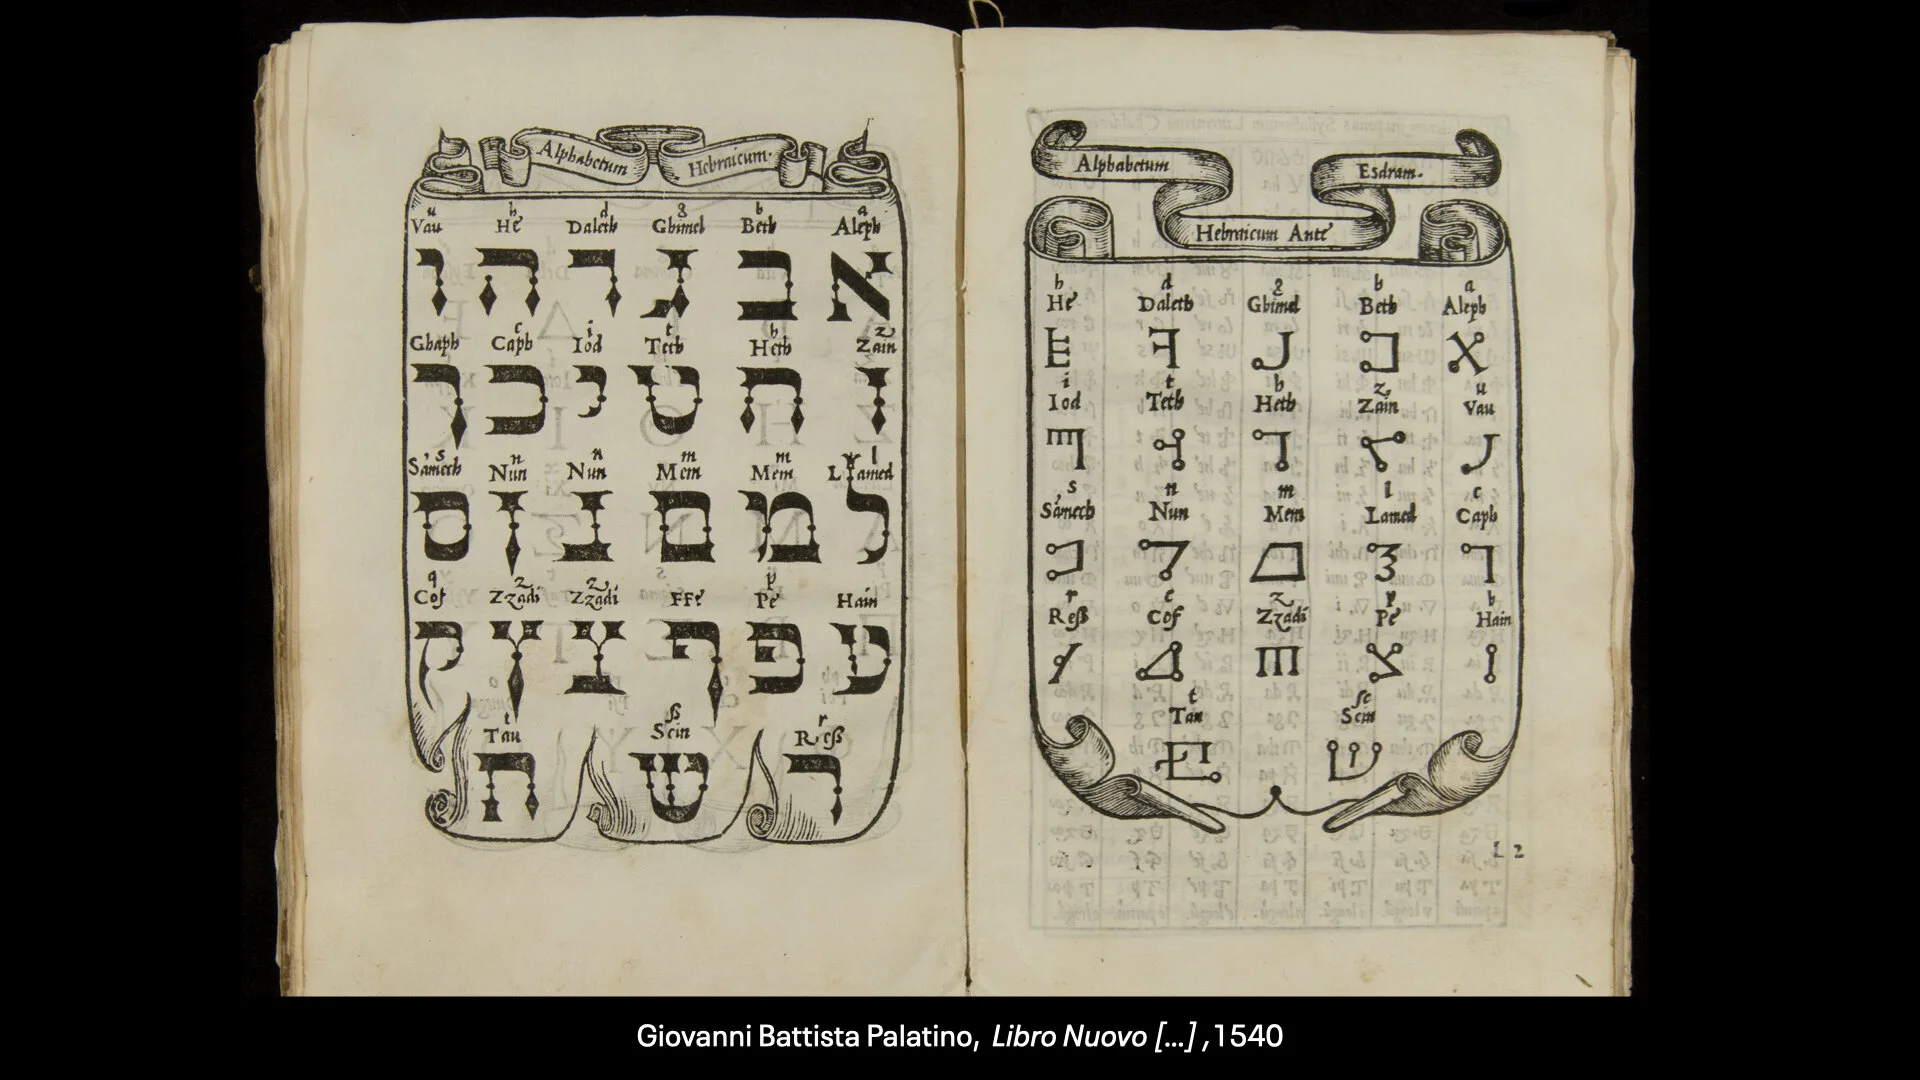 Alphabetum Hebraicum.
u h d g b a
Vau He' Daleth Ghimel Beth Aleph
א ב ג ד ה ו
c i t h z
Ghaph Caph Iod Teth Heth Zain
ז ח ט י כ ך
s n n m m l
Samech Nun Nun Mem Mem Lamed
ל מ ם נ ן ס
q z z p
Cof Zzadi Zzadi FFe' Pe' Hain
ע פ ף צ ץ ק
t ß r
Tau Scin Reß
ר ש ת
Alphabetum Hebraicum Ante' Esdram.
h d g b a
He' Daleth Ghimel Beth Aleph
i t h z u
Iod Teth Heth Zain Vau
s n m l c
Samech Nun Mem Lamed Caph
r c z p h
Reß Cof Zzadi Pe' Hain
t sc
Tau Scin
L 2
Giovanni Battista Palatino, Libro Nuovo [...] ,1540